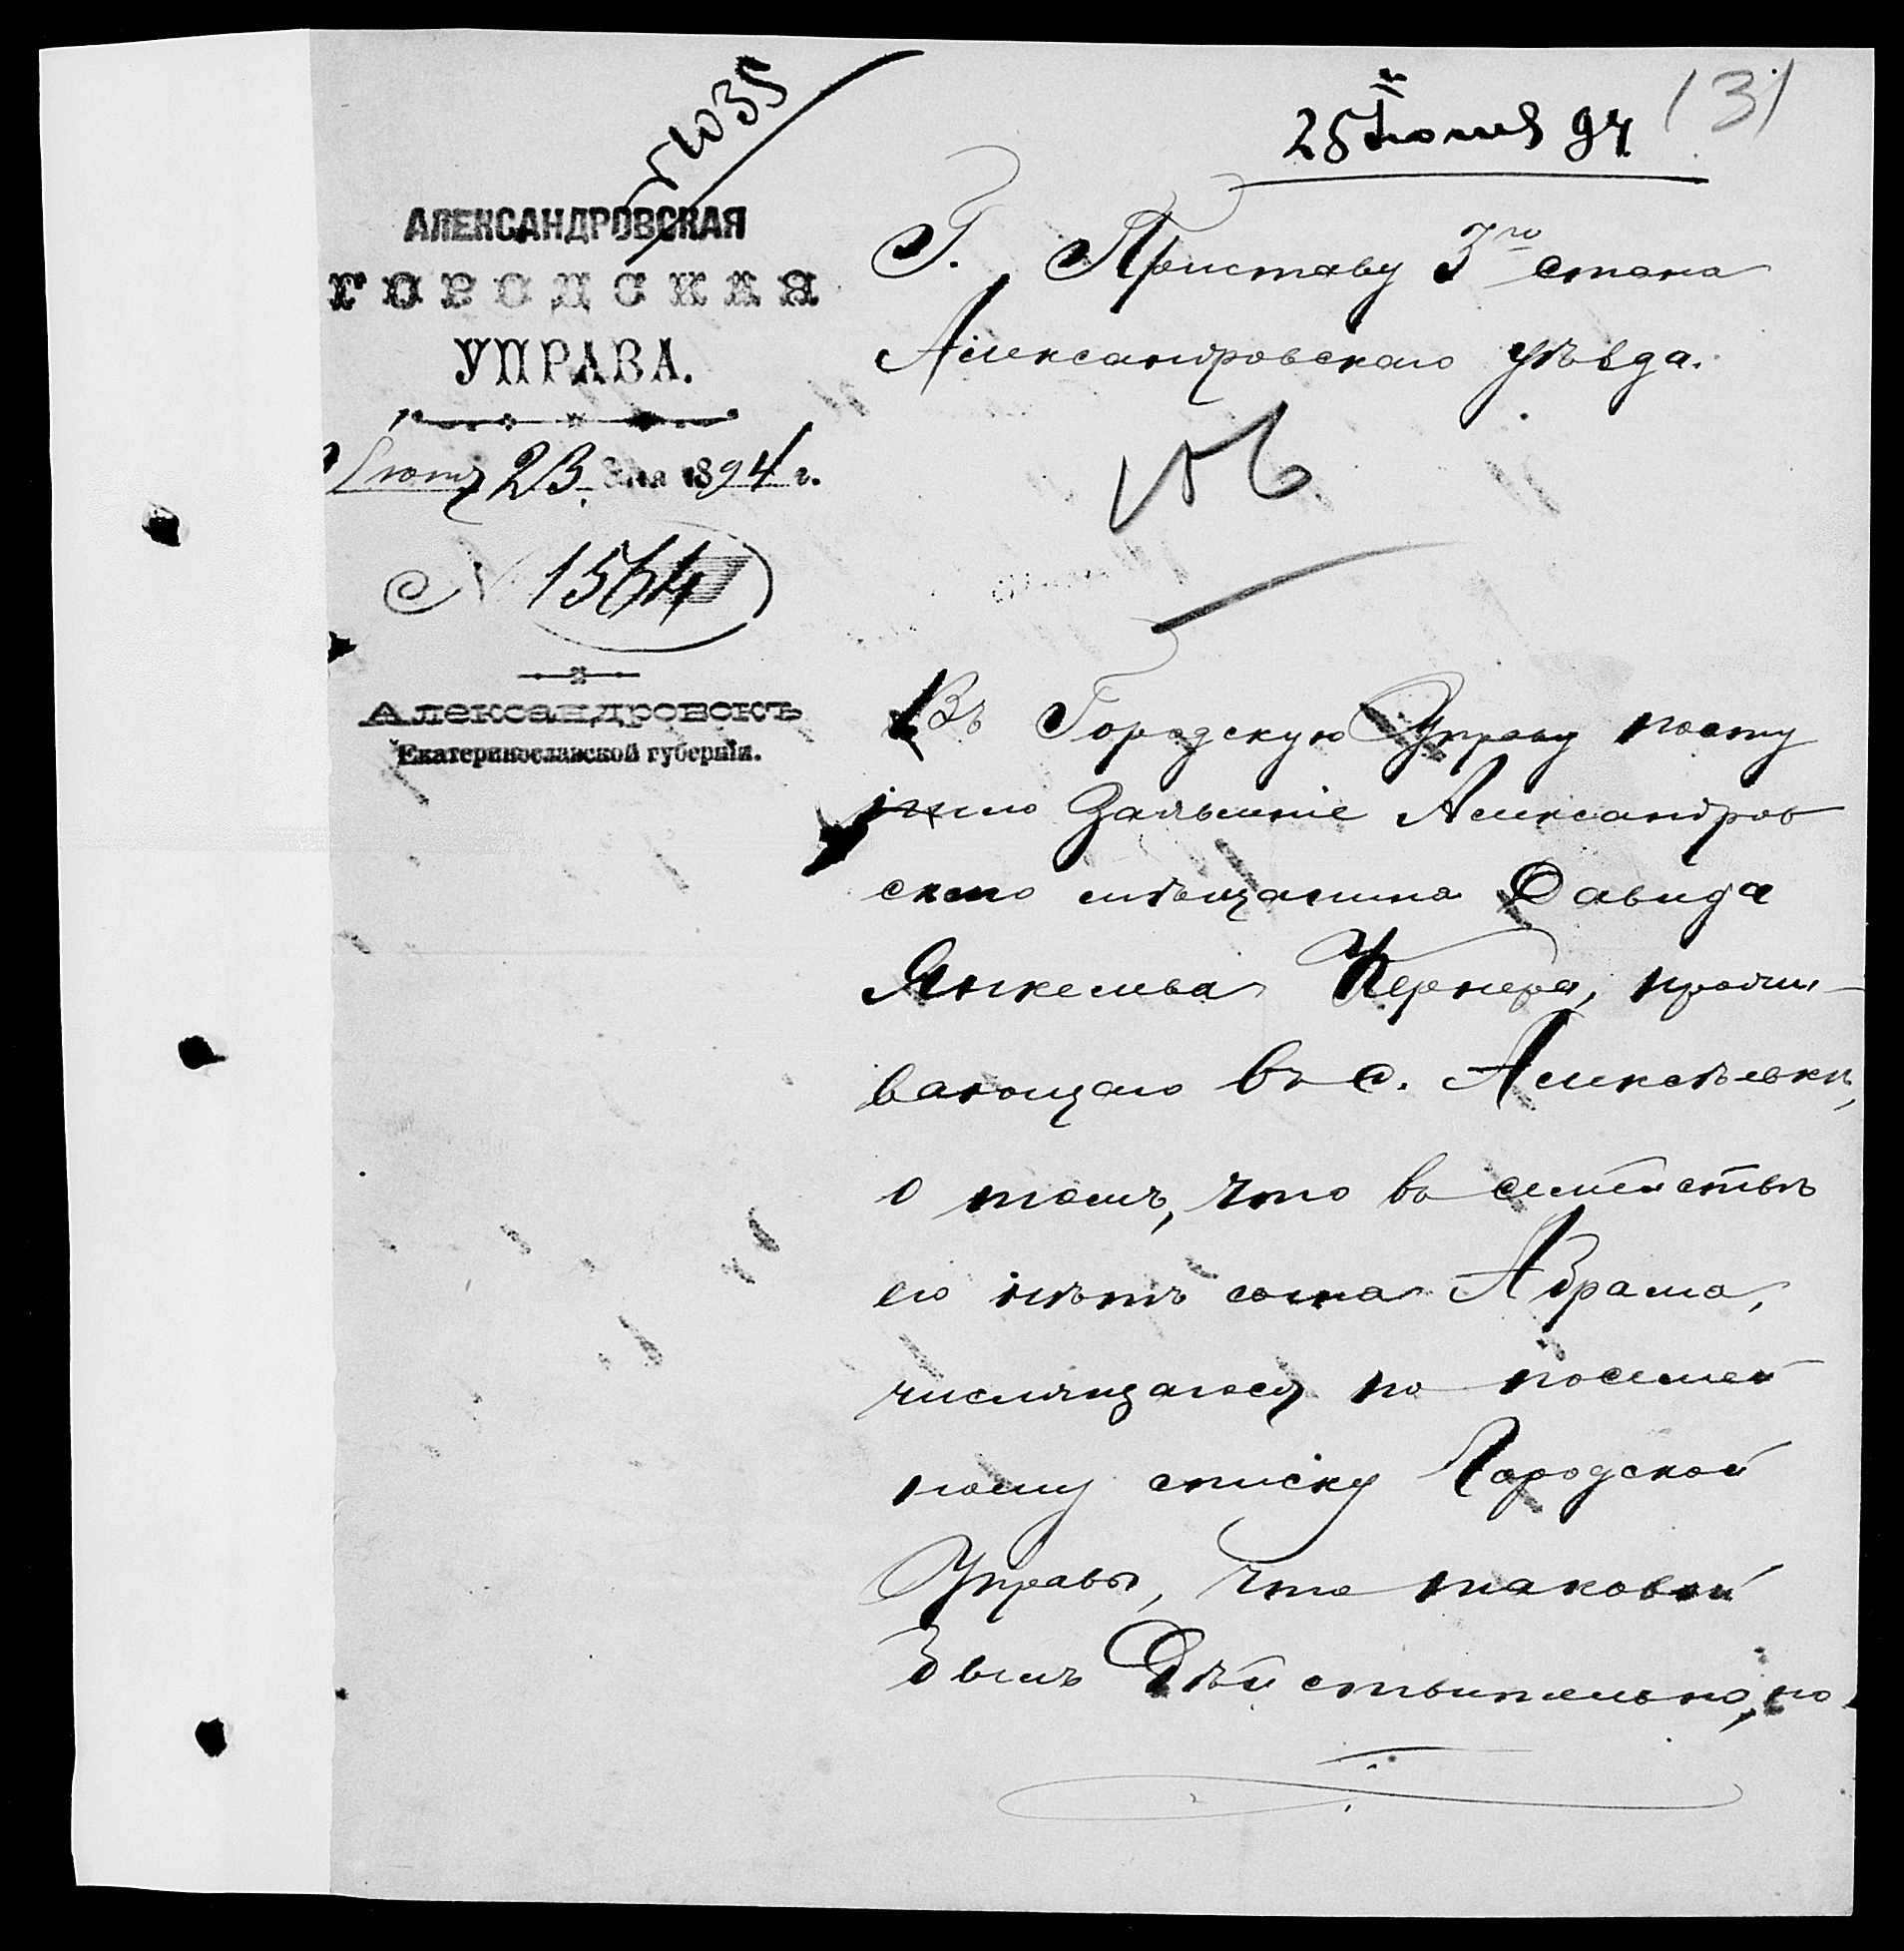 1035
25 Іюня 94
131
АЛЕКСАНДРОВСКАЯ
ГОРОДСКАЯ
УПРАВА.
Іюня 23 дня 1894 г.
№ 1564
Александровскъ
Екатеринославской губерніи.
Г. Приставу 3го стана
Александровскаго уѣзда.
Въ Городскую Управу посту
пило Заявленіе Александров
скаго мѣщанина Давида
Янкелева Кернера, прожи-
вающаго въ с. Алексѣевкѣ,
о томъ, что въ семействѣ
его нѣтъ сына Абрама,
числящагося по посемей
ному списку Городской
Управы, что таковой
былъ дѣйствительно, но